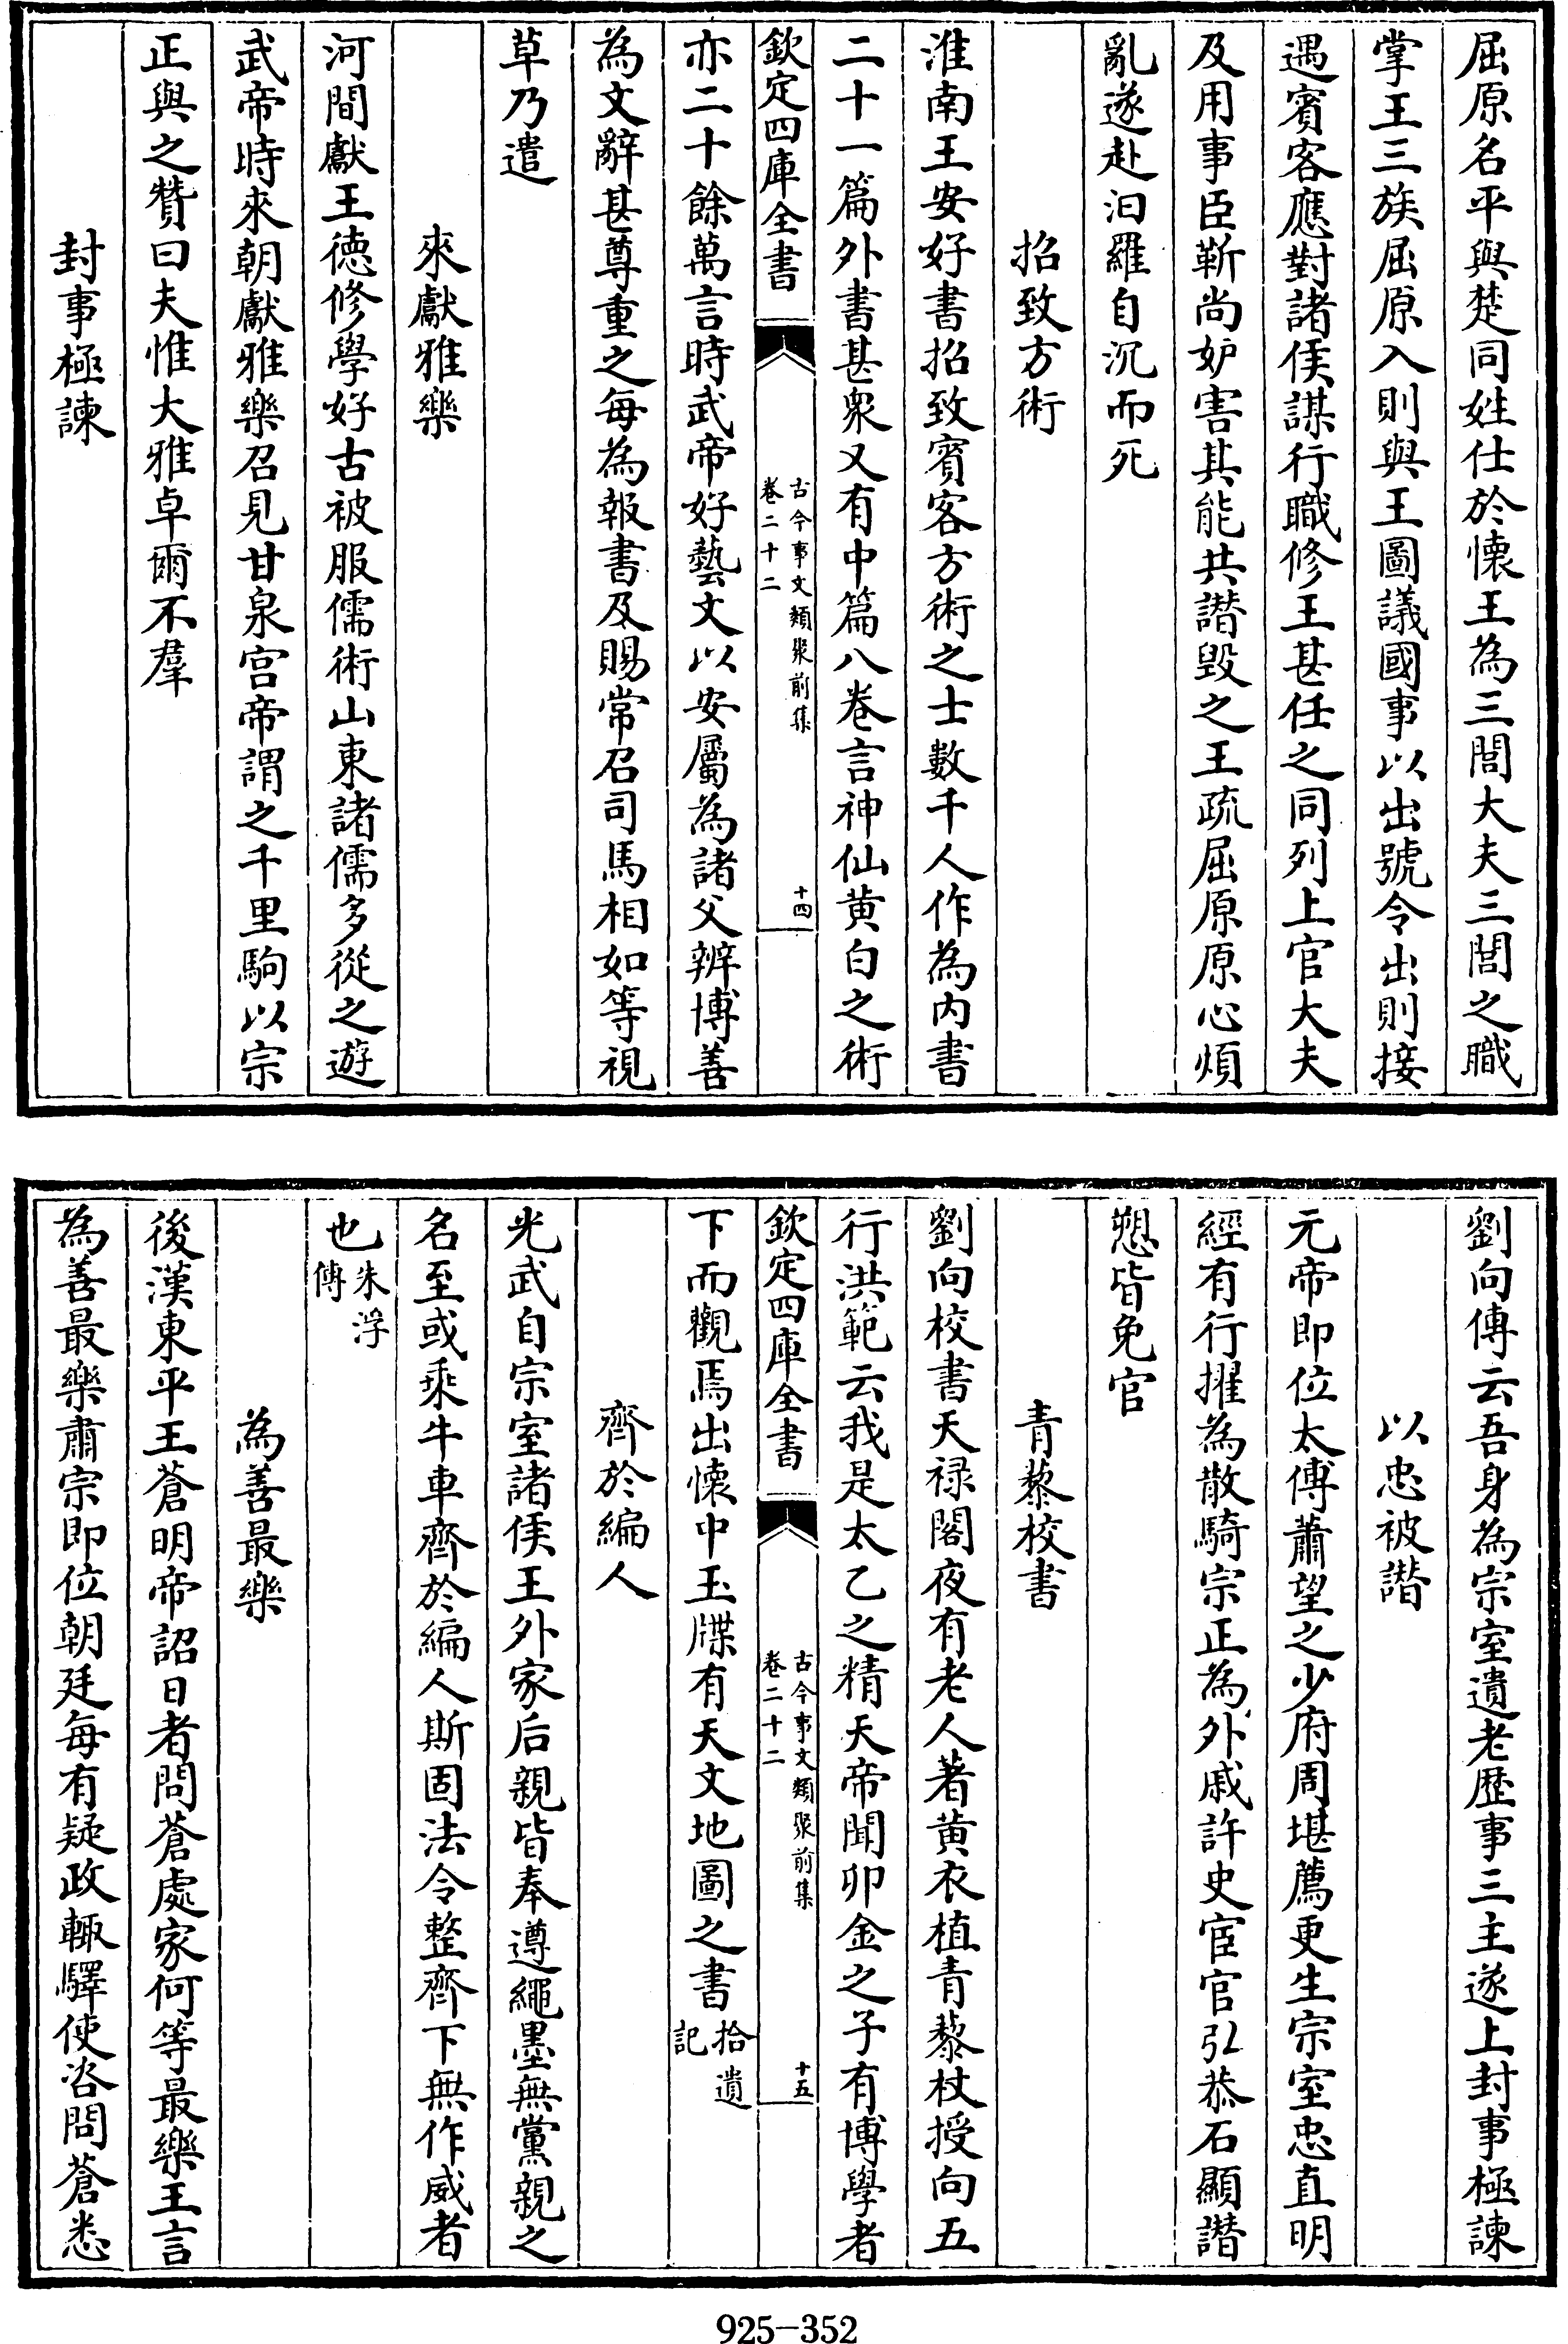 屈原名平與楚同姓仕於懷王為三閭大夫三閭之職
掌王三族屈原入則與王圖議國事以出號令出則接
遇賓客應對諸侯謀行職修王甚任之同列上官大夫
及用事臣靳尚妒害其能共譖毀之王疏屈原原心煩
亂遂赴汨羅自沉而死
招致方術
淮南王安好書招致賓客方術之士數千人作為内書
二十一篇外書甚衆又有中篇八卷言神仙黄白之術
欽定四庫全書
古今事文類聚前集
卷二十二
十四
亦二十餘萬言時武帝好藝文以安屬為諸父辨博善
為文辭甚尊重之每為報書及賜常召司馬相如等視
草乃遣
來獻雅樂
河間獻王德修學好古被服儒術山東諸儒多從之遊
武帝時來朝獻雅樂召見甘泉宫帝謂之千里駒以宗
正與之贊曰夫惟大雅卓爾不羣
封事極諫
劉向傳云吾身為宗室遺老歴事三主遂上封事極諫
以忠被譖
元帝即位太傅蕭望之少府周堪薦更生宗室忠直明
經有行擢為散騎宗正為外戚許史宦官弘恭石顯譖
愬皆免官
青藜校書
劉向校書天禄閣夜有老人著黄衣植青藜杖授向五
行洪範云我是太乙之精天帝聞卯金之子有博學者
欽定四庫全書
古今事文類聚前集
卷二十二
十五
下而觀焉出懷中玉牒有天文地圖之書拾遺記
齊於編人
光武自宗室諸侯王外家后親皆奉遵繩墨無黨親之
名至或乘牛車齊於編人斯固法令整齊下無作威者
也朱浮傳
為善最樂
後漢東平王蒼明帝詔日者問蒼處家何等最樂王言
為善最樂肅宗即位朝廷每有疑政輙驛使咨問蒼悉
925-352